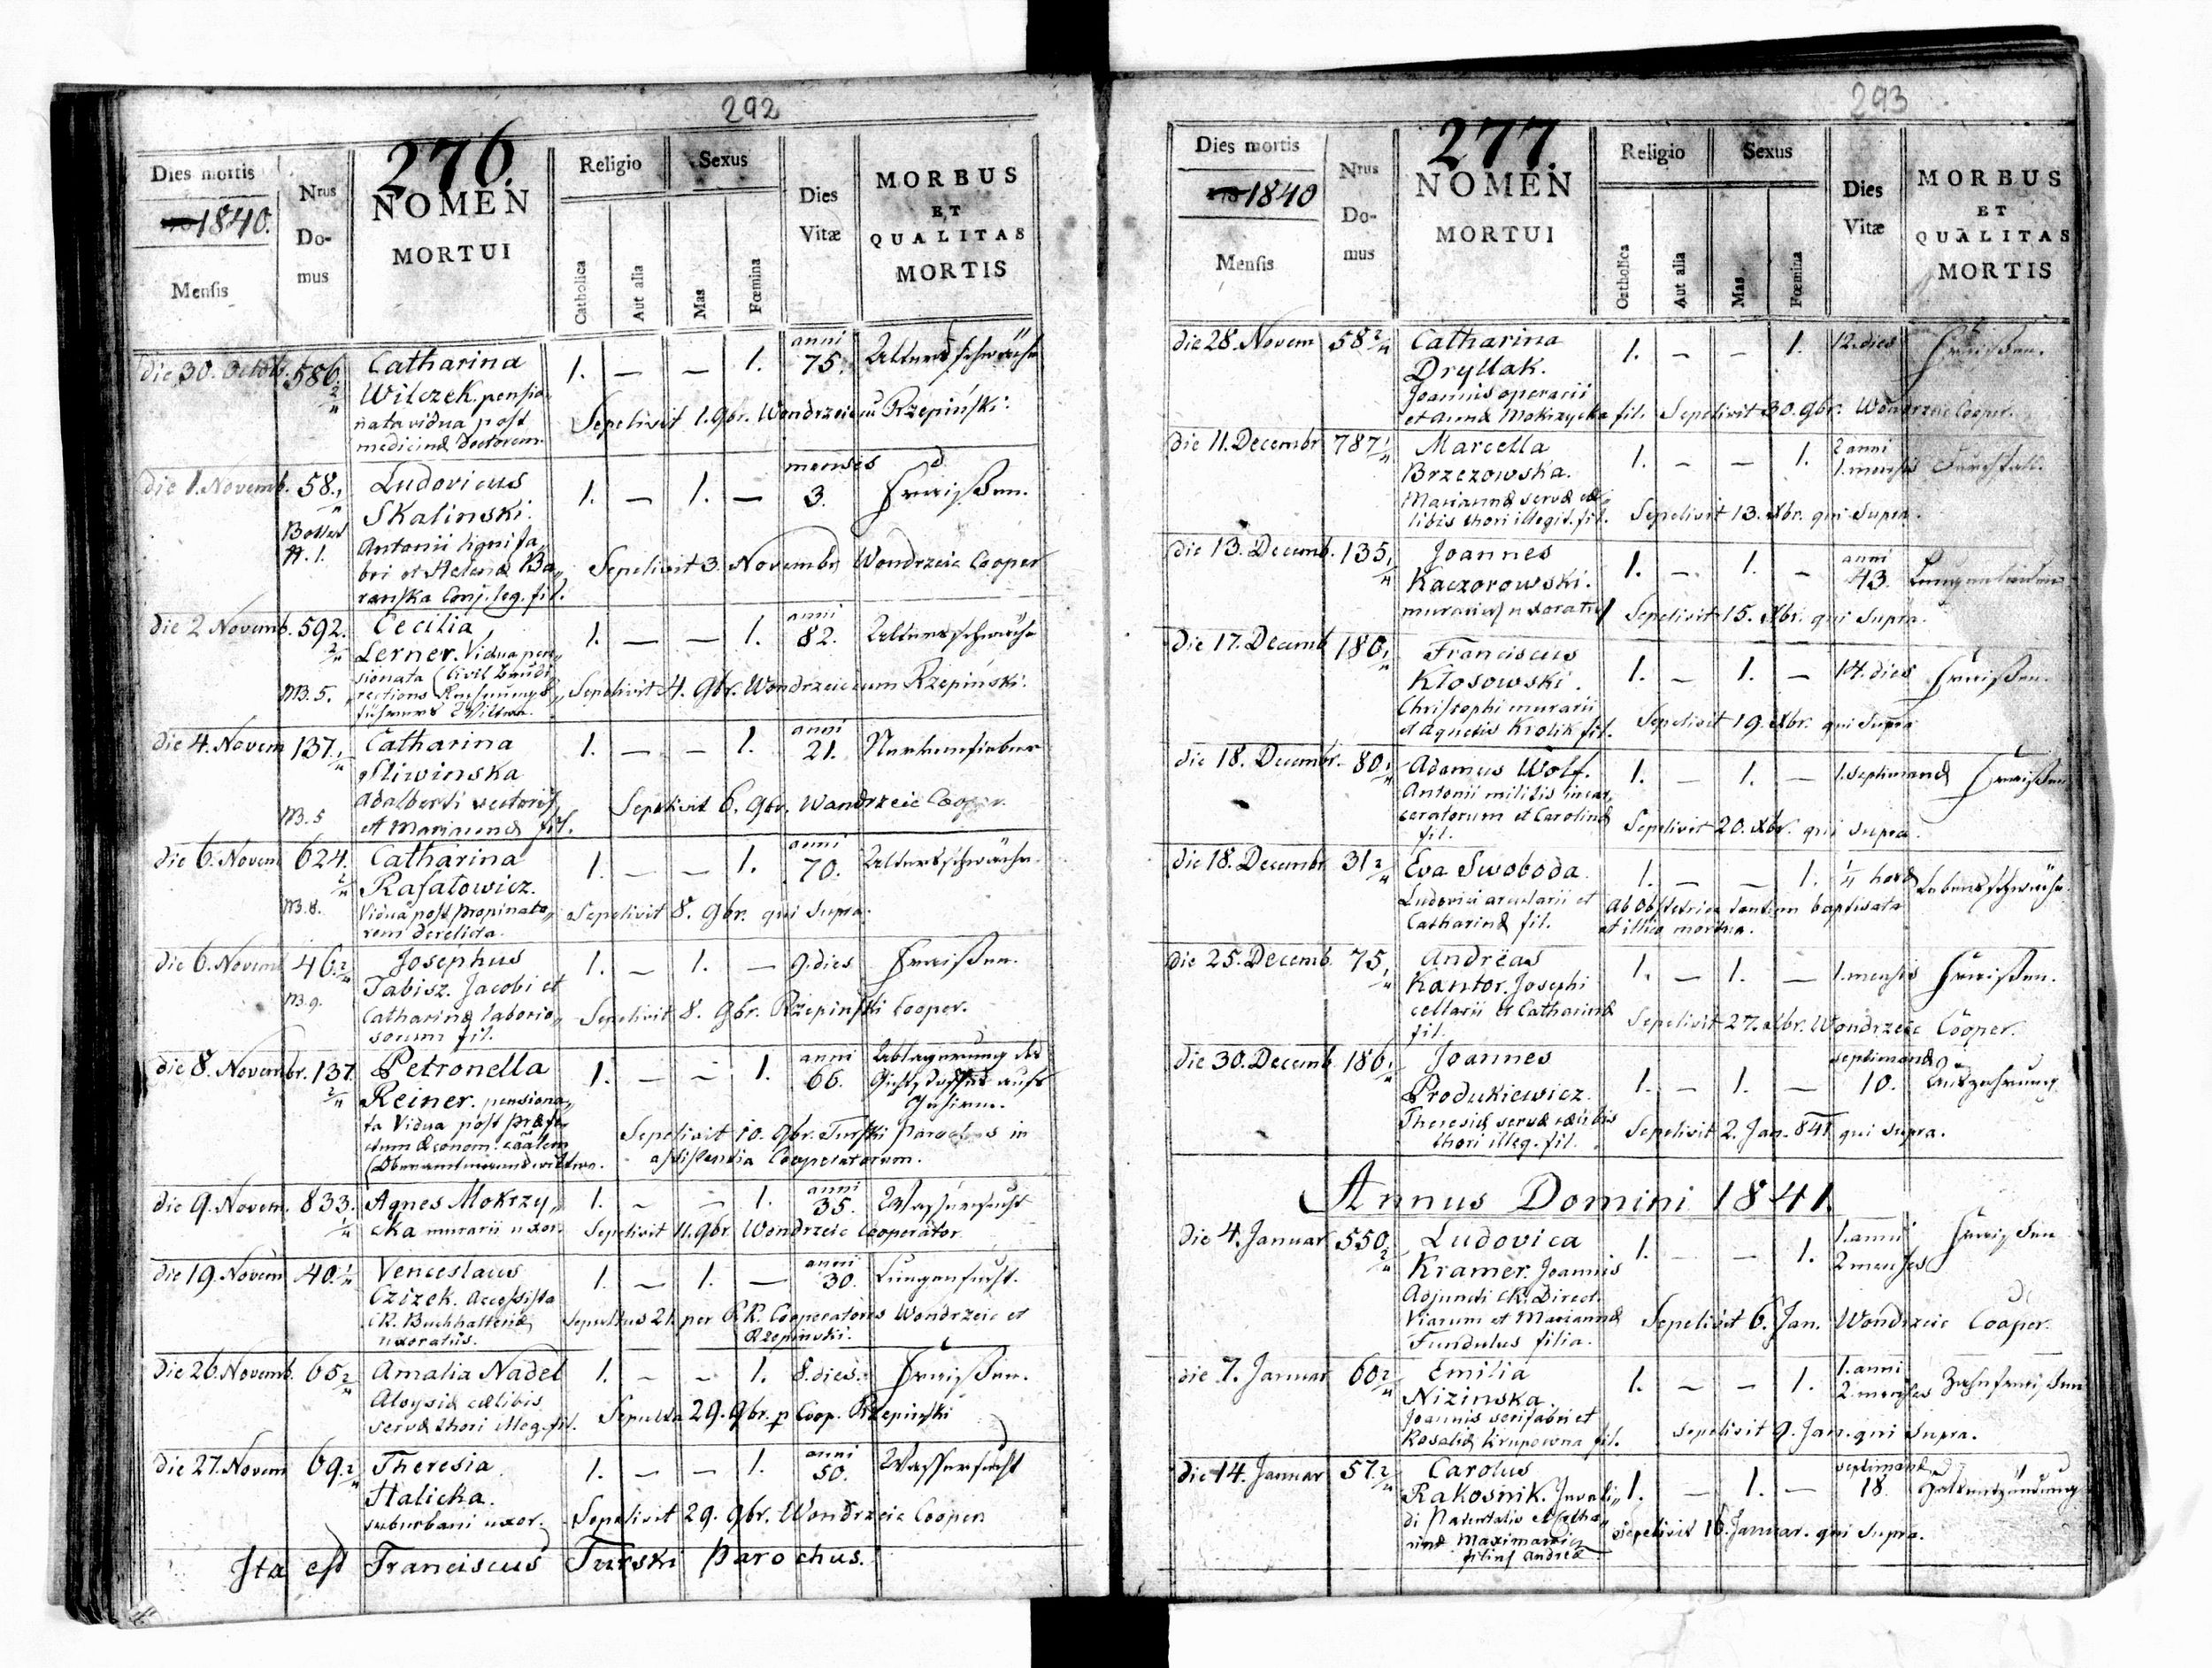 292
276.
Dies mortis
1840.
Mensis
Nrus
Do-
mus
NOMEN
MORTUI
Religio
Catholica
Aut alia
Sexus
Mas
Fœmina
Dies
Vitæ
MORBUS
ET
QUALITAS
MORTIS
die 30. Octob. 586. 2/4 Catharina 1. — — 1. anni 75. Altersschwäche
Wilczek pensio-
nata vidua post
medicinæ Doctorem
Sepelivit 1. 9br. Wondrzeic cum Rzepiński.
die 1. Novemb. 58. 1/4 Ludovicus 1. — 1. — menses 3. Fraißen.
Skalinski.
Antonii lignifa-
bri et Helenæ Ba„
ranska Conj. leg. fil.
Sepelivit 3. Novembr Wondrzeic Cooper
die 2 Novemb. 592. 2/4 Cecilia 1. — — 1. anni 82. Altersschwäche
N3. 5. Lerner. Vidua pen„
sionata (Civil Baudi„
rections Rechnungs„
führers Wittwe.
Sepelivit 4. 9br. Wondrzeic cum Rzepiński.
die 4. Novem 137. 1/4 Catharina 1. — — 1. anni 21. Nervenfieber
Sliwinska
Adalberti vectoris
N3. 5 et Mariannæ fil.
Sepelivit 6. 9br. Wondrzeic Cooper.
die 6. Novem 624. 2/4 Catharina 1. — — 1. anni 70. Altersschwäche.
Rafałowicz.
N3. 8. Vidua post propinato„
rem derelicta.
Sepelivit 8. 9br. qui supra.
die 6. Novem 46. 2/4 Josephus 1. — 1. — 9. dies Fraißen.
N3. 9. Tabisz. Jacobi et
Catharinæ laborio„
sorum fil.
Sepelivit 8. 9br. Rzepiński Cooper.
die 8. Novembr. 137 2/4 Petronella 1. — — 1. anni 66. Ablagerung des
Gichtstoffes aufs
Gehirn.
Reiner. pensiona„
ta Vidua post Præfe„
ctum Œconom.
(Oberamtmannswittwe.
Sepelivit 10. 9br. Turski Parochus in
assistentia Cooperatorum.
die 9. Novem. 833. 1/4 Agnes Mokrzy„ 1. — — 1. anni 35. Wassersucht
cka murarii uxor.
Sepelivit 11. 9br. Wondrzeic Cooperator
die 19. Novem 40. 1/4 Venceslaus 1. — 1. — anni 30. Lungensucht.
Czizek. Accessista
CR. Buchhalteriæ
uxoratus.
Sepultus 21. per RR. Cooperatores Wondrzeic et
Rzepinski.
die 26. Novemb. 65 2/4 Amalia Nadel 1. — — 1. 8. dies. Fraißen.
Aloysiæ cælibis
servæ thori illeg. fil.
Sepulta 29. 9br. p Coop. Rzepinski
die 27. Novem 69. 2/4 Theresia 1. — — 1. anni 50. Wassersucht
Halicka.
suburbani uxor.
Sepelivit 29. 9br. Wondrzeic Cooper
Ita est Franciscus Turski Parochus.
293
277.
Dies mortis
1840
Mensis
Nrus
Do-
mus
NOMEN
MORTUI
Religio
Catholica
Aut alia
Sexus
Mas
Fœmina
Dies
Vitæ
MORBUS
ET
QUALITAS
MORTIS
die 28. Novem 58 2/4 Catharina 1. — — 1. 12. dies Fraißen.
Dryllak.
Joannis operarii
et Annæ Mokrzycka fil.
Sepelivit 30. 9br. Wondrzeic Cooper.
die 11. Decembr 787 1/4 Marcella 1. — — 1. 2 anni 1. mensis Durchfall.
Brzezowska.
Mariannæ servæ cæ„
libis thori illegit. fil.
Sepelivit 13. Xbr. qui supra.
die 13. Decemb. 135. 1/4 Joannes 1. — 1. — anni 43.
Kaczorowski.
murarius uxoratus
Sepelivit 15. Xbr. qui supra.
die 17. Decemb 180. 1/4 Franciscus 1. — 1. — 14. dies Fraißen.
Kłosowski.
Christophi murarii
et Agnetis Krolik fil.
Sepelivit 19. Xbr. qui supra
die 18. Decembr. 80. 1/4 Adamus Wolf. 1. — 1. — 1. septimanæ Fraißen
Antonii militis incar„
ceratorum et Carolinæ
fil.
Sepelivit 20. Xbr. qui supra.
die 18. Decembr 31 2/4 Eva Swoboda. 1. — — 1. 1/4 horæ Lebensschwäche
Ludovici arcularii et
Catharinæ fil.
Ab obstetrice tantum baptisata
et illico mortua.
die 25. Decemb. 75. 1/4 Andreas 1. — 1. — 1. mensis Fraißen.
Kantor. Josephi
cellarii et Catharinæ
fil.
Sepelivit 27. Xbr. Wondrzeic Cooper.
die 30. Decemb 186. 1/4 Joannes 1. — 1. — septimanæ 10. Auszehrung
Produkiewicz.
Theresiæ servæ cælibis
thori illeg. fil.
Sepelivit 2. Jan. 841 qui supra.
Annus Domini 1841.
die 4. Januar 550. 2/4 Ludovica 1. — — 1. 1. anni 2 menses Fraißen
Kramer. Joannis
Adjuncti CR. Direct.
Viarum et Mariannæ
Fundulus filia.
Sepelivit 6. Jan. Wondrzeic Cooper.
die 7. Januar 60 2/4 Emilia 1. — — 1. 1. anni 2. menses Zahnfraißen
Nizinska.
Joannis serifabri et
Rosaliæ Krupowna fil.
Sepelivit 9. Jan. qui supra.
die 14. Januar 57. 2/4 Carolus 1. — 1. — septimanæ 18. Halsentzündung
Rakosnik. Invali„
di Patentalis et Catha„
rinæ Maximowicz
filius Andreæ
Sepelivit 16. Januar. qui supra.